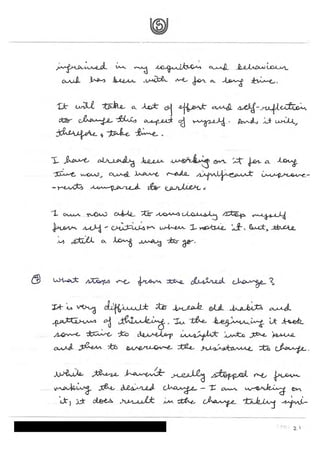 ingrained in my cognition and behaviour
and has been with me for a long time.
It will take a lot of effort and self-reflection
to change this aspect of myself. And it will,
therefore, take time.
I have already been working on it for a long
time now, and have made significant improve-
-ments compared to earlier.
I am now able to consciously stop myself
from self-criticism when I notice it. But, there
is still a long way to go.
What stops me from the desired change?
It is very difficult to break old habits and
patterns of thinking. In the beginning it took
some time to develop insight into the issue
and then to overcome the resistance to change.
While these haven't really stopped me from
making the desired change - I am working on
it, it does result in the change taking signi-